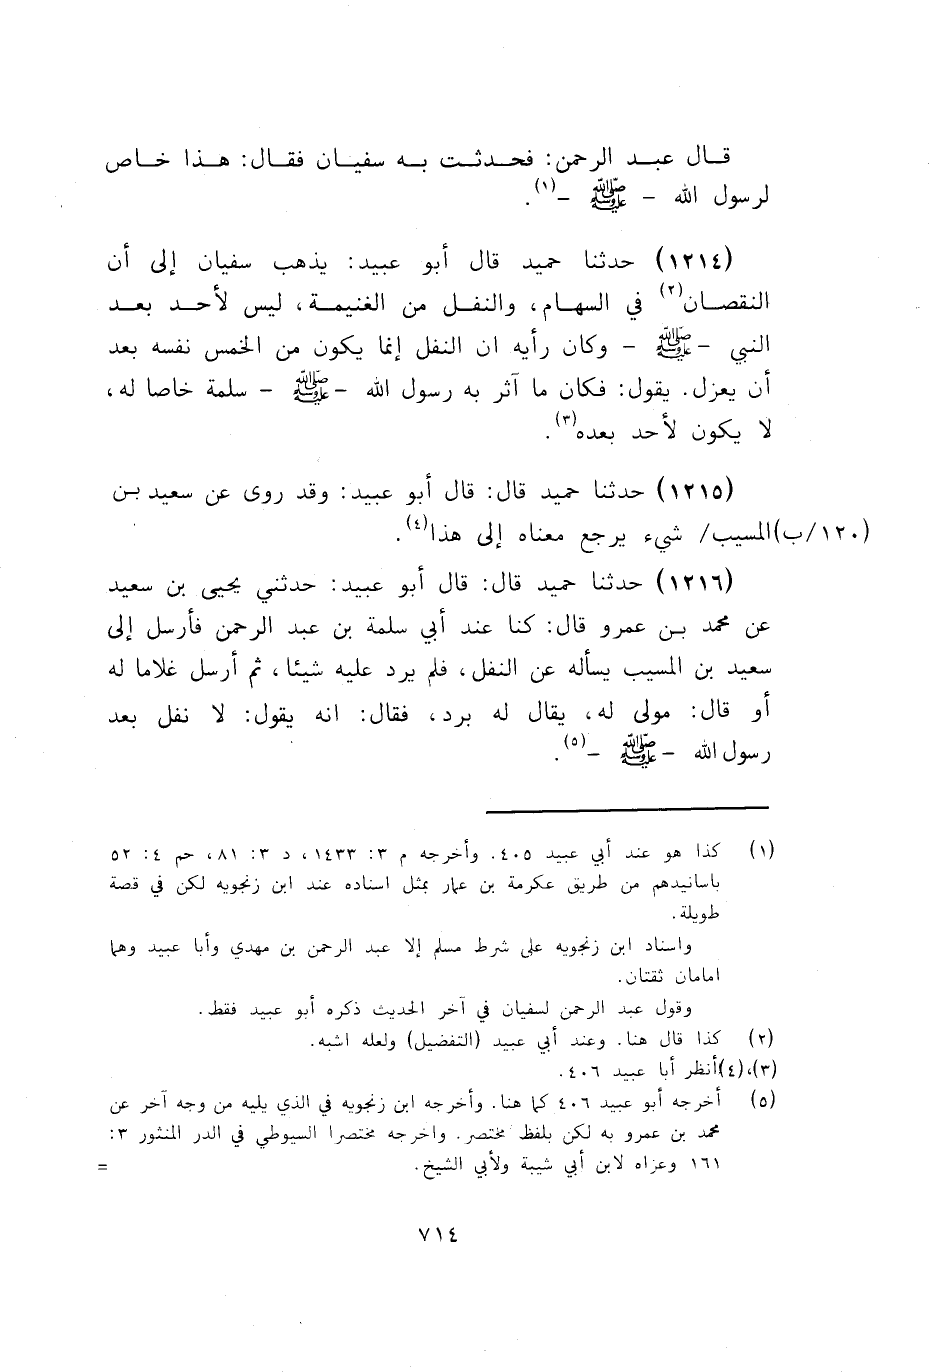 قال عبد الرحمن: فحدثت به سفيان فقال: هذا خاص
لرسول الله - ﷺ -(١).
(١٢١٤) حدثنا حميد قال أبو عبيد: يذهب سفيان إلى أن
النقصان(٢) في السهام، والنفل من الغنيمة، ليس لأحد بعد
النبي - ﷺ - وكان رأيه ان النفل إنما يكون من الخمس نفسه بعد
أن يعزل. يقول: فكان ما آثر به رسول الله - ﷺ - سلمة خاصا له،
لا يكون لأحد بعده(٣).
(١٢١٥) حدثنا حميد قال: قال أبو عبيد: وقد روى عن سعيد بن
(١٢٠/ب) المسيب/ شيء يرجع معناه إلى هذا(٤).
(١٢١٦) حدثنا حميد قال: قال أبو عبيد: حدثني يحيى بن سعيد
عن محمد بن عمرو قال: كنا عند أبي سلمة بن عبد الرحمن فأرسل إلى
سعيد بن المسيب يسأله عن النفل، فلم يرد عليه شيئا، ثم أرسل غلاما له
أو قال: مولى له، يقال له برد، فقال: انه يقول: لا نفل بعد
رسول الله - ﷺ -(٥).
(١) كذا هو عند أبي عبيد ٤٠٥. وأخرجه م ٣: ١٤٣٣، د ٣: ٨١، حم ٤: ٥٢
باسانيدهم من طريق عكرمة بن عمار بمثل اسناده عند ابن زنجويه لكن في قصة
طويلة.
واسناد ابن زنجويه على شرط مسلم إلا عبد الرحمن بن مهدي وأبا عبيد وهما
امامان ثقتان.
وقول عبد الرحمن لسفيان في آخر الحديث ذكره أبو عبيد فقط.
(٢) كذا قال هنا. وعند أبي عبيد (التفضيل) ولعله اشبه.
(٣)،(٤) أنظر أبا عبيد ٤٠٦.
(٥) أخرجه أبو عبيد ٤٠٦ كما هنا. وأخرجه ابن زنجويه في الذي يليه من وجه آخر عن
محمد بن عمرو به لكن بلفظ مختصر. واخرجه مختصرا السيوطي في الدر المنثور ٣:
١٦١ وعزاه لابن أبي شيبة ولأبي الشيخ. =
٧١٤